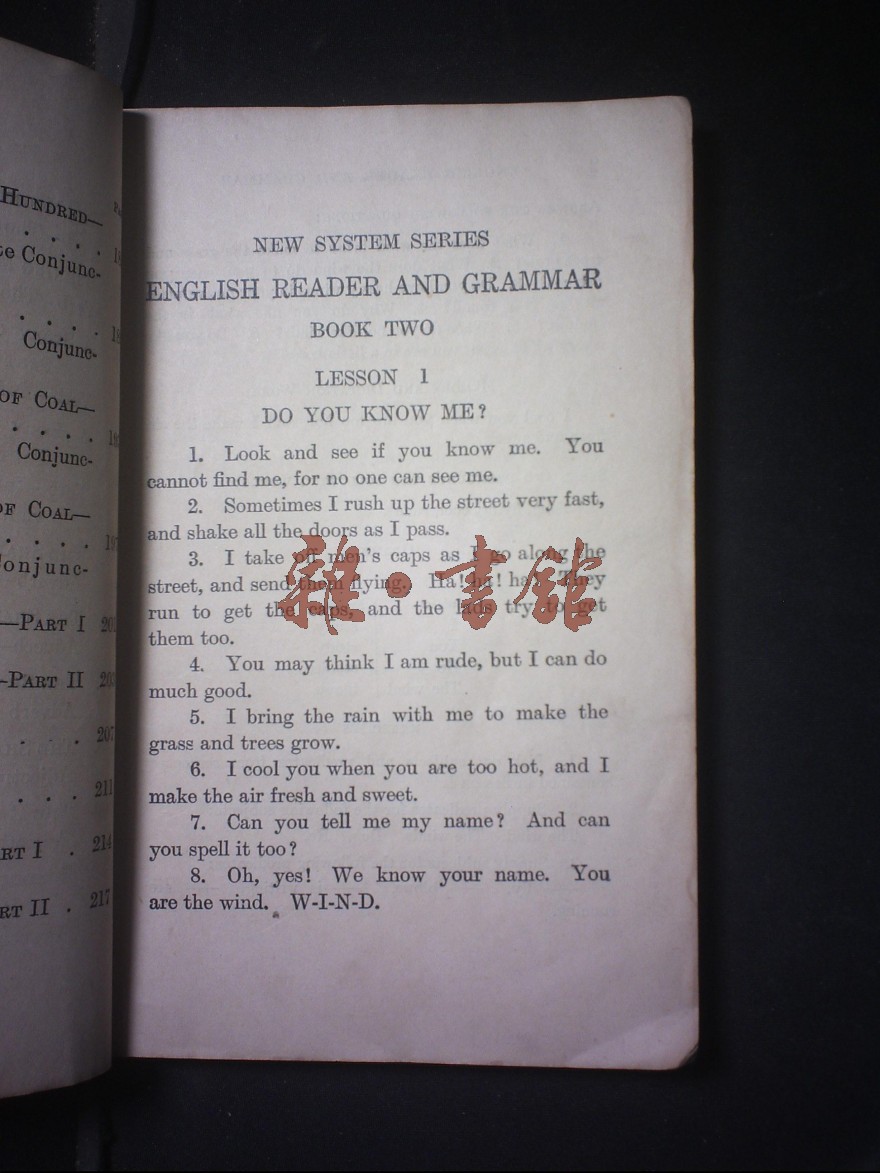 HUNDRED—
Conjunc-
Conjunc-
OF COAL—
Conjunc-
OF COAL—
Conjunc-
—PART I
—PART II
207
211
RT I . 214
RT II . 217
NEW SYSTEM SERIES
ENGLISH READER AND GRAMMAR
BOOK TWO
LESSON 1
DO YOU KNOW ME?
1. Look and see if you know me. You
cannot find me, for no one can see me.
2. Sometimes I rush up the street very fast,
and shake all the doors as I pass.
3. I take off men's caps as I go along the
street, and send them flying. Ha! ha! ha! They
run to get the caps, and the lads try to get
them too.
4. You may think I am rude, but I can do
much good.
5. I bring the rain with me to make the
grass and trees grow.
6. I cool you when you are too hot, and I
make the air fresh and sweet.
7. Can you tell me my name? And can
you spell it too?
8. Oh, yes! We know your name. You
are the wind. W-I-N-D.
雜·書館